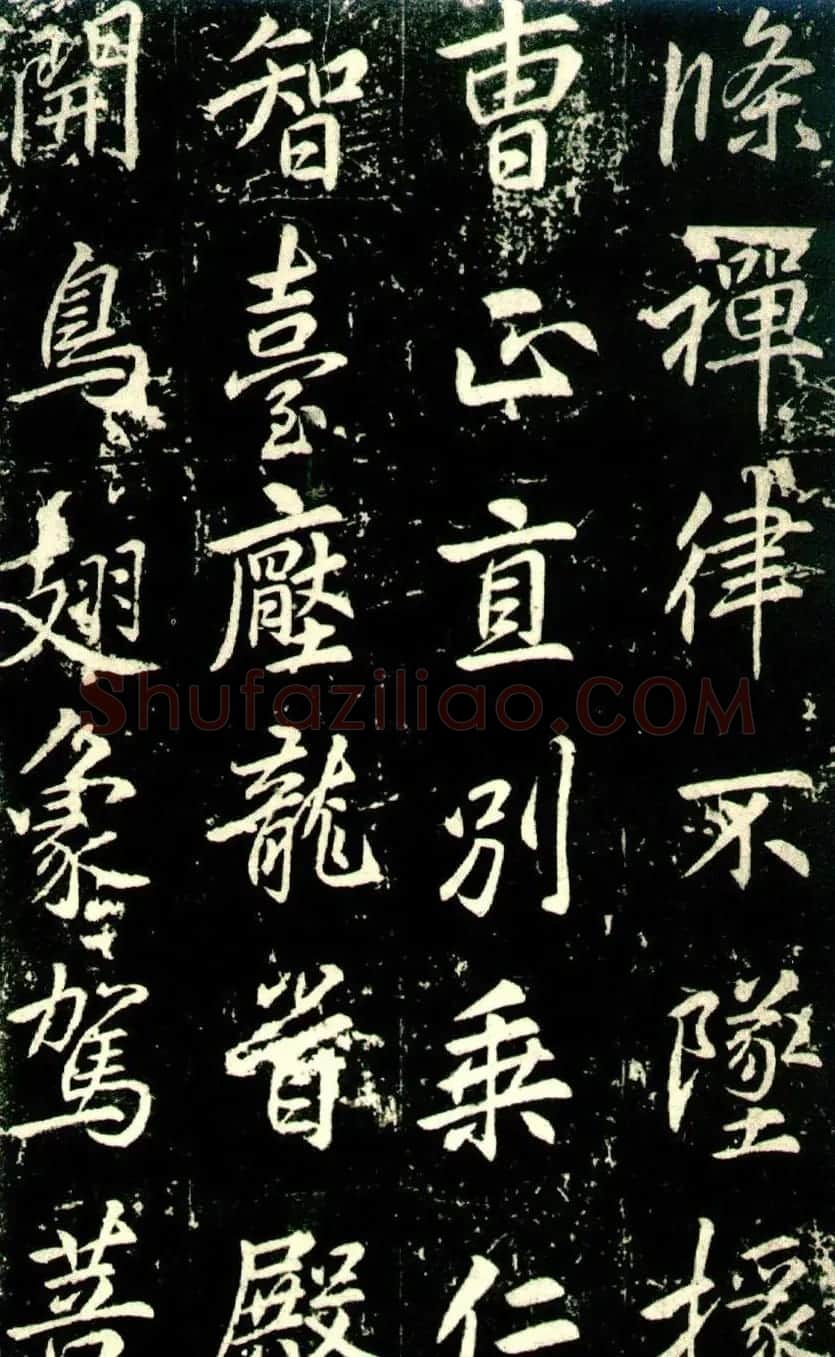 條禪律不墜掾
曹正直別乘仁
智臺壓龍首殿
開鳥翅象駕菩
Shufaziliao.COM